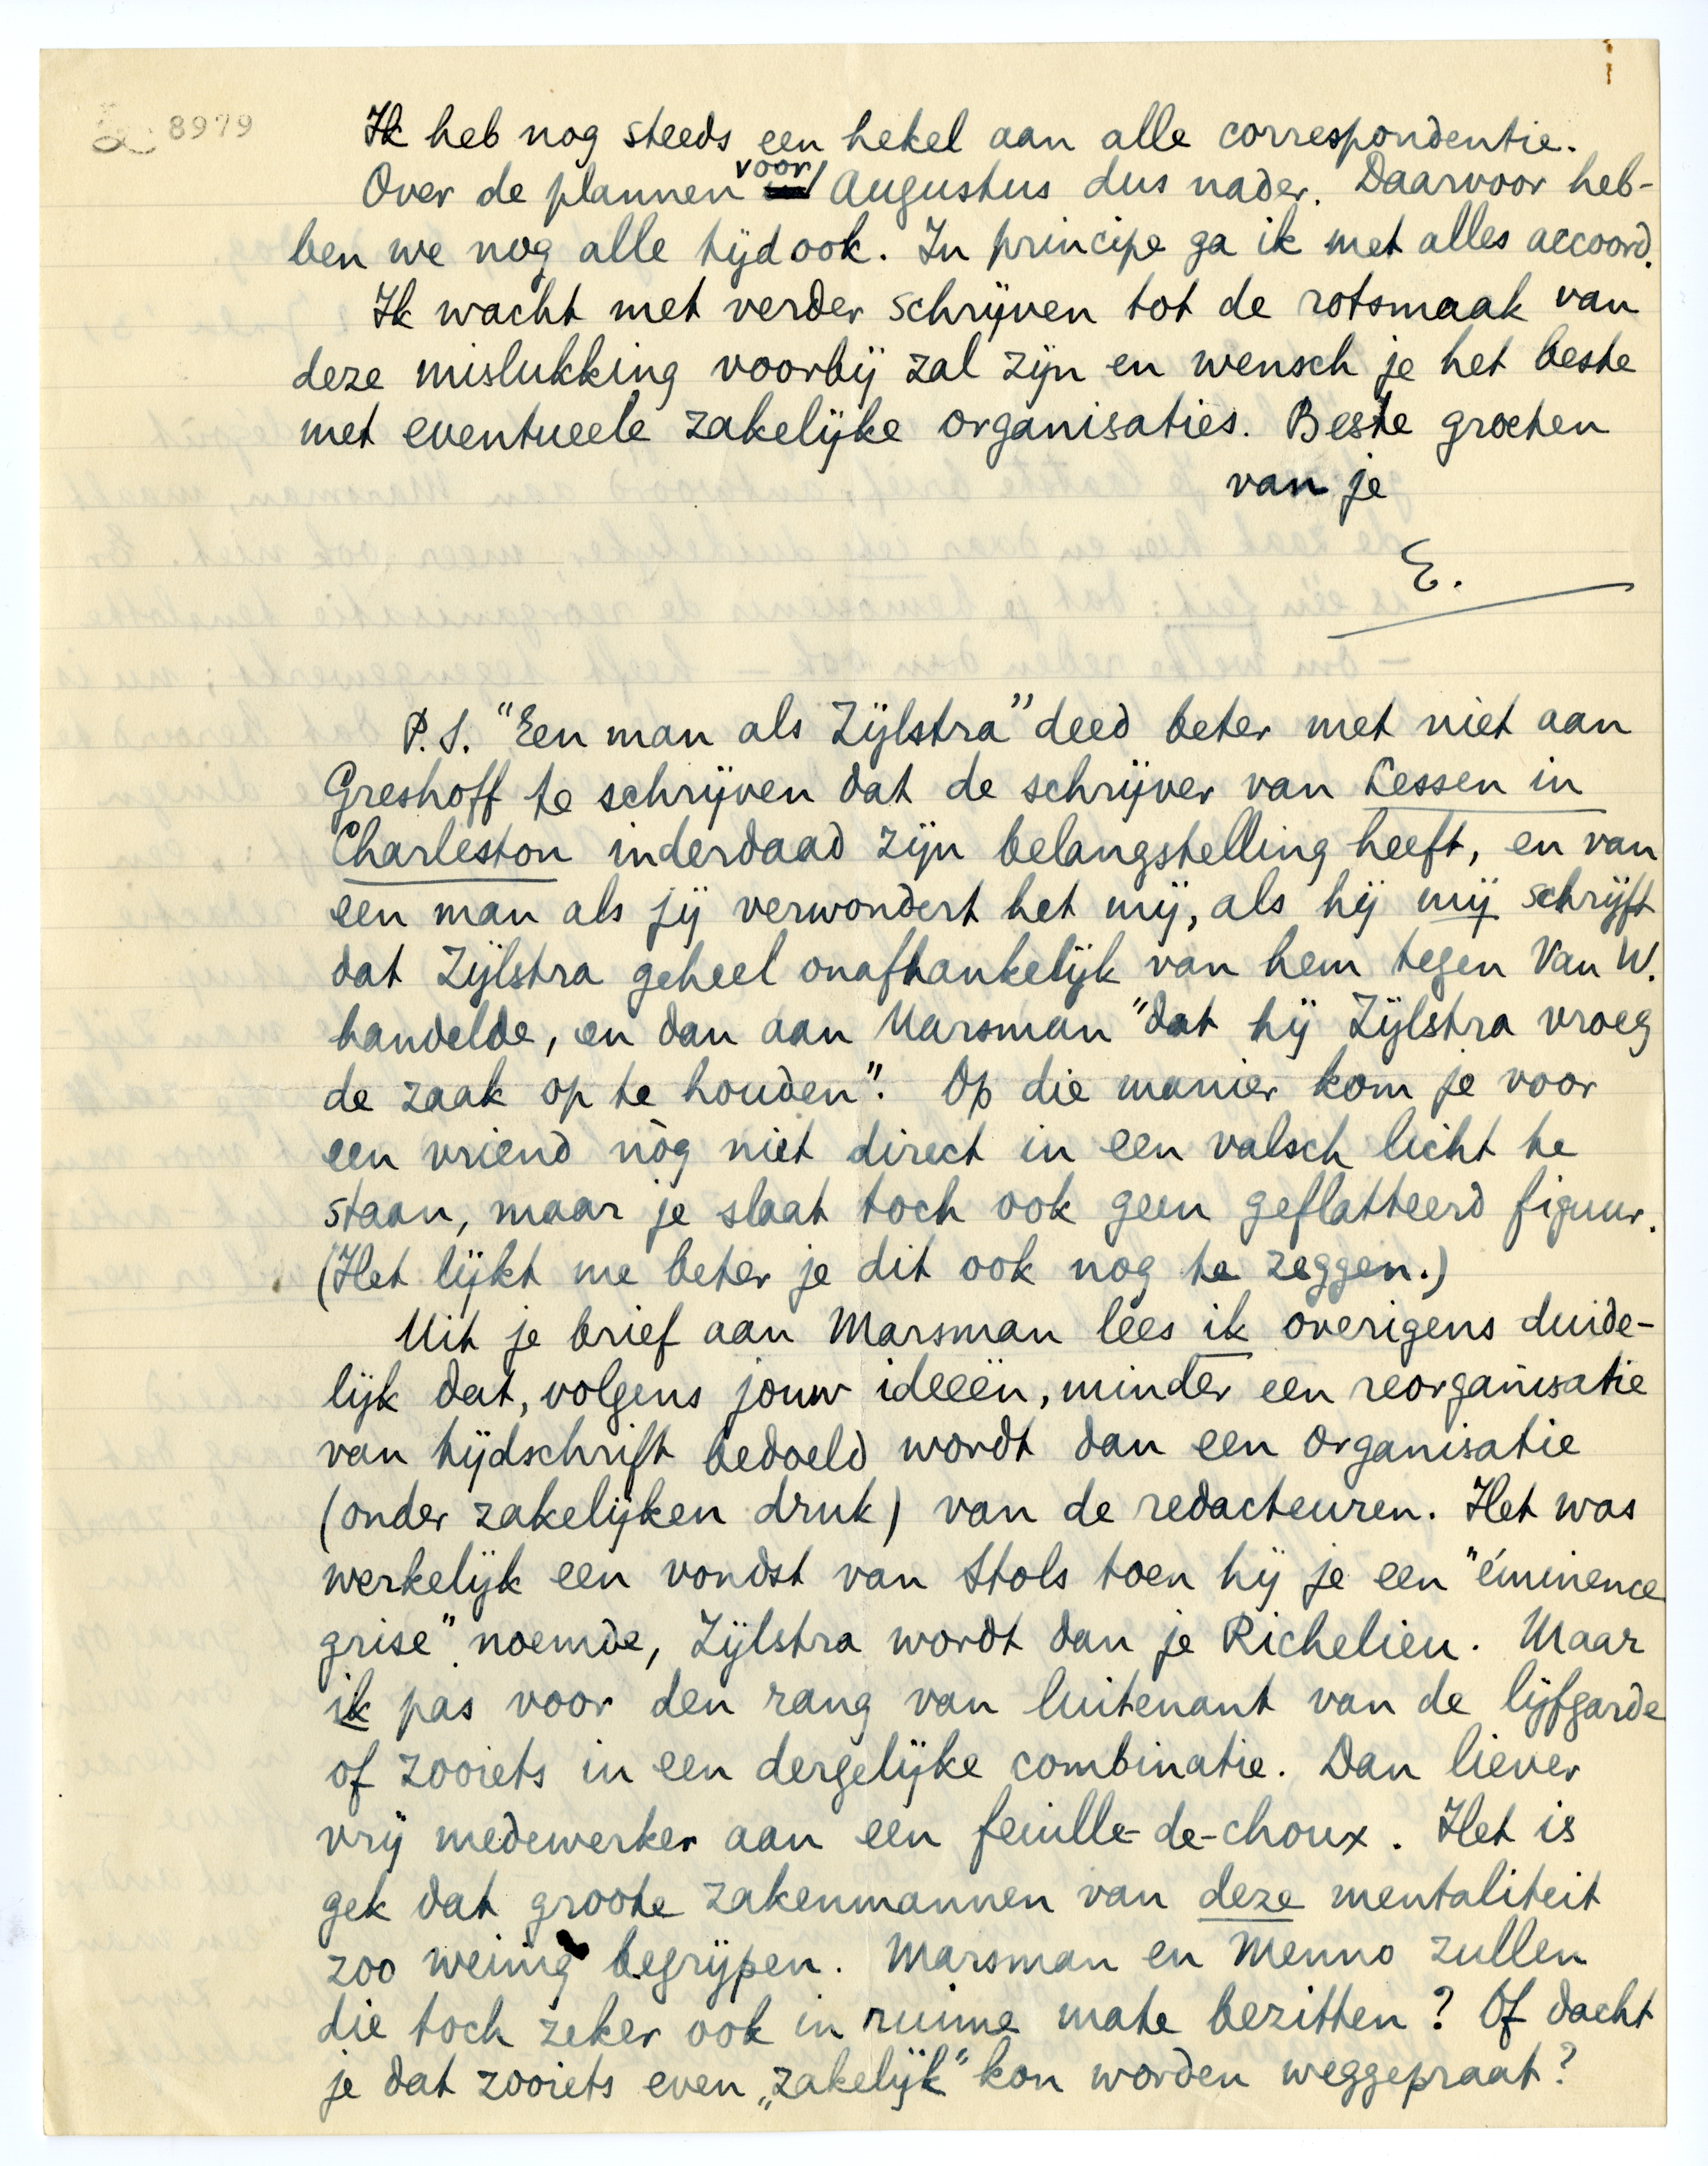 8979
Ik heb nog steeds een hekel aan alle correspondentie.
Over de plannen voor Augustus dus nader. Daarvoor heb-
ben we nog alle tijd ook. In principe ga ik met alles accoord.
Ik wacht met verder schrijven tot de rotsmaak van
deze mislukking voorbij zal zijn en wensch je het beste
met eventueele zakelijke organisaties. Beste groeten
van je
E.
P.S. "Een man als Zijlstra" deed beter met niet aan
Greshoff te schrijven dat de schrijver van Lessen in
Charleston inderdaad zijn belangstelling heeft, en van
een man als jij verwondert het mij, als hij mij schrijft
dat Zijlstra geheel onafhankelijk van hem tegen Van W.
handelde, en dan aan Marsman "dat hij Zijlstra vroeg
de zaak op te houden". Op die manier kom je voor
een vriend nòg niet direct in een valsch licht te
staan, maar je slaat toch ook geen geflatteerd figuur.
(Het lijkt me beter je dit ook nog te zeggen.)
Uit je brief aan Marsman lees ik overigens duide-
lijk dat, volgens jouw ideeën, minder een reorganisatie
van tijdschrift bedoeld wordt dan een organisatie
(onder zakelijken druk) van de redacteuren. Het was
werkelijk een vondst van Stols toen hij je een "éminence
grise" noemde, Zijlstra wordt dan je Richelieu. Maar
ik pas voor den rang van luitenant van de lijfgarde
of zooiets in een dergelijke combinatie. Dan liever
vrij medewerker aan een feuille-de-choux. Het is
gek dat groote zakenmannen van deze mentaliteit
zoo weinig begrijpen. Marsman en Menno zullen
die toch zeker ook in ruime mate bezitten? Of dacht
je dat zooiets even „zakelijk" kon worden weggepraat?